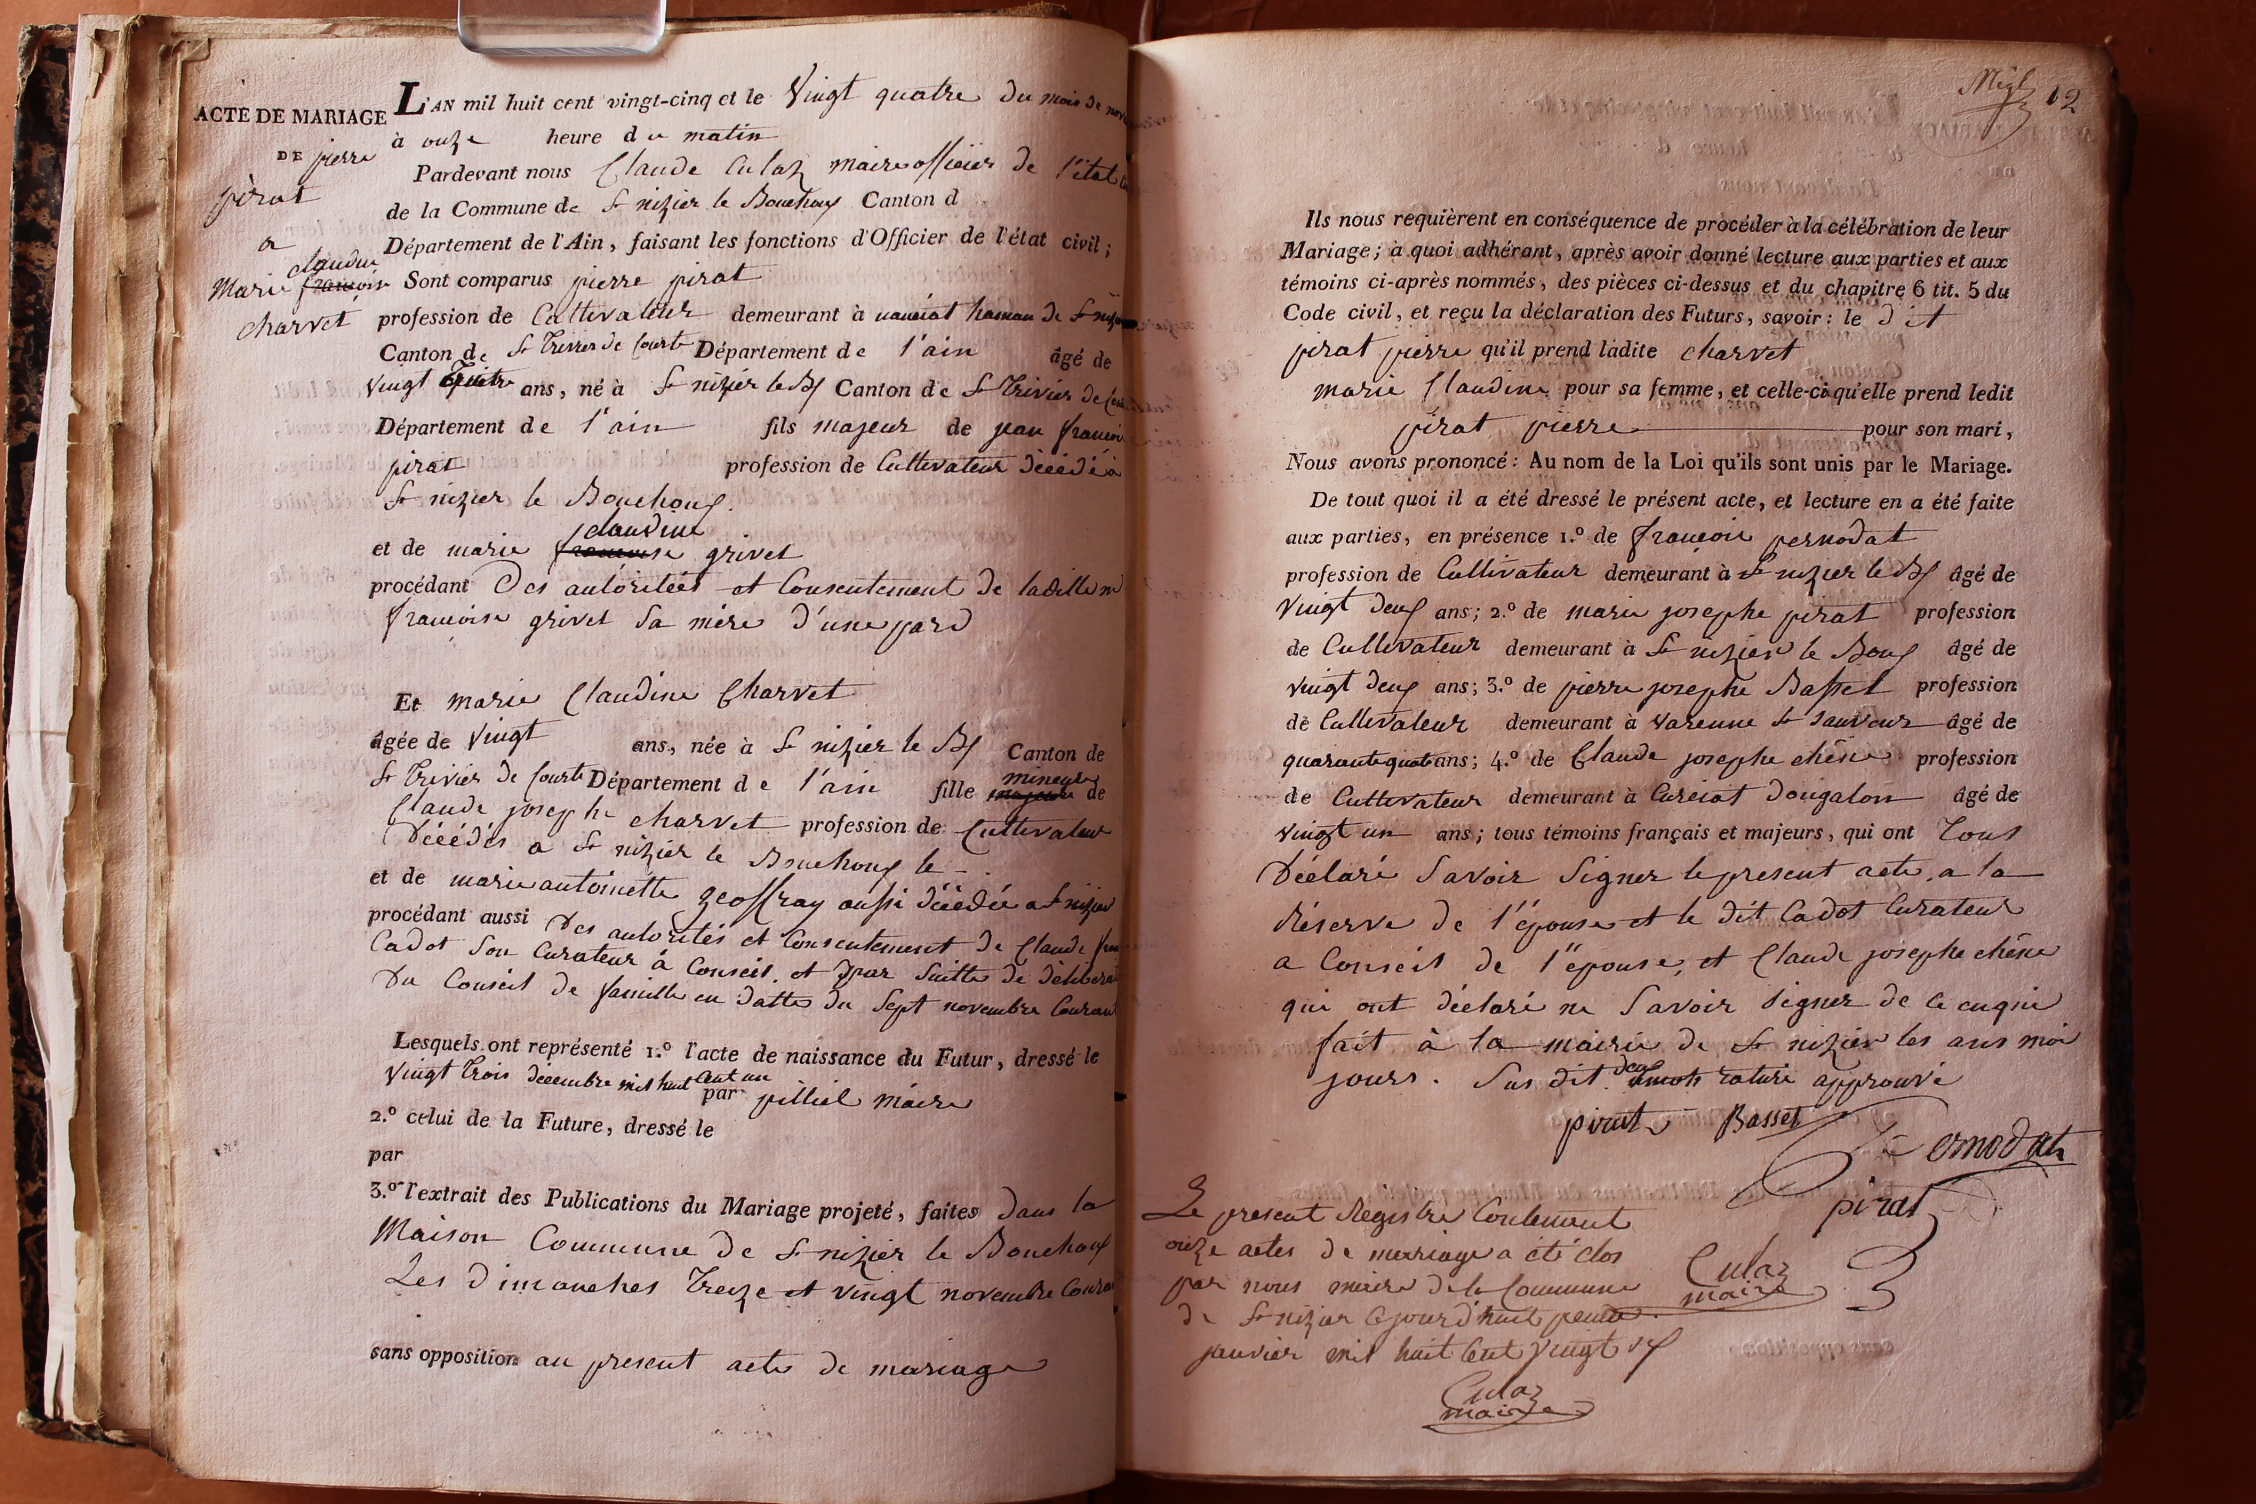 ACTE DE MARIAGE
DE pierre
pirat
et
claudine
Marie françoise
charvet
L'AN mil huit cent vingt-cinq et le Vingt quatre du mois de nov
à onze heure du matin
Pardevant nous Claude Culaz maire officier de l'état
de la Commune de St nizier le Bouchoux Canton d
Département de l'Ain, faisant les fonctions d'Officier de l'état civil;
Sont comparus pierre pirat
profession de Cultivateur demeurant à hamau de St nizier
Canton de St Trivier de Courte Département de l'ain âgé de
vingt ans, né à St nizier le Bx Canton de St Trivier de Cour
Département de l'ain fils majeur de jean françois
pirat profession de Cultivateur décédé à
St nizier le Bouchoux.
claudine
et de marie françoise grivet
procédant Des autoritées et Consentement de laditte m
françoise grivet Sa mère d'une pard
Et marie Claudine Charvet
âgée de Vingt ans, née à St nizier le Bx Canton de
St Trivier de Courte Département de l'ain fille mineure majeure de
Claude josephe charvet profession de Cultivateur
Décédés a St nizier le Bouchoux le -
et de marie antoinette geoffray aussi décédée a St nizier
procédant aussi Des autorités et Consentement de Claude fran
Cadot Son Curateur à Conseil, et par Suitte de déliberat
Du Conseil de famille en datte du Sept novembre Courant
Lesquels ont représenté 1.º l'acte de naissance du Futur, dressé le
vingt trois décembre mil huit Cent un par pilliol maire
2.º celui de la Future, dressé le
par
3.º l'extrait des Publications du Mariage projeté, faites dans la
Maison Commune de St nizier le Bouchoux
Les Dimanches Treize et vingt novembre Coura
sans opposition au present acte de mariage
12
Ils nous requièrent en conséquence de procéder à la célébration de leur
Mariage; à quoi adhérant, après avoir donné lecture aux parties et aux
témoins ci-après nommés, des pièces ci-dessus et du chapitre 6 tit. 5 du
Code civil, et reçu la déclaration des Futurs, savoir: le dit
pirat pierre qu'il prend ladite charvet
marie Claudine pour sa femme, et celle-ci qu'elle prend ledit
pirat pierre pour son mari,
Nous avons prononcé: Au nom de la Loi qu'ils sont unis par le Mariage.
De tout quoi il a été dressé le présent acte, et lecture en a été faite
aux parties, en présence 1.º de françois pernodat
profession de Cultivateur demeurant à St nizier le Bx âgé de
Vingt deux ans; 2.º de marie josephe pirat profession
de Cultivateur demeurant à St nizier le Boux âgé de
vingt deux ans; 3.º de pierre josephe Basset profession
de Cultivateur demeurant à varenne St sauveur âgé de
quarante quatre ans; 4.º de Claude josephe chêne profession
de Cultivateur demeurant à Curciat dongalon âgé de
vingt un ans; tous témoins français et majeurs, qui ont Tous
Déclaré Savoir Signer le present acte, a la
réserve de l'épouse et le dit Cadot Curateur
a Conseil de l'épouse, et Claude josephe chêne
qui ont déclaré ne Savoir Signer de ce enquis
fait à la mairie de St nizier les ans moi
jours. Sus dit deux mots raturé approuvé
pirat Basset
Pernodat
pirat
Le present Registre Contenant
onze actes de marriage a été clos
par nous maire de la Commune
de St nizier Cejourd'huit
janvier mil huit Cent Vingt six
Culaz
maire
Culaz
maire